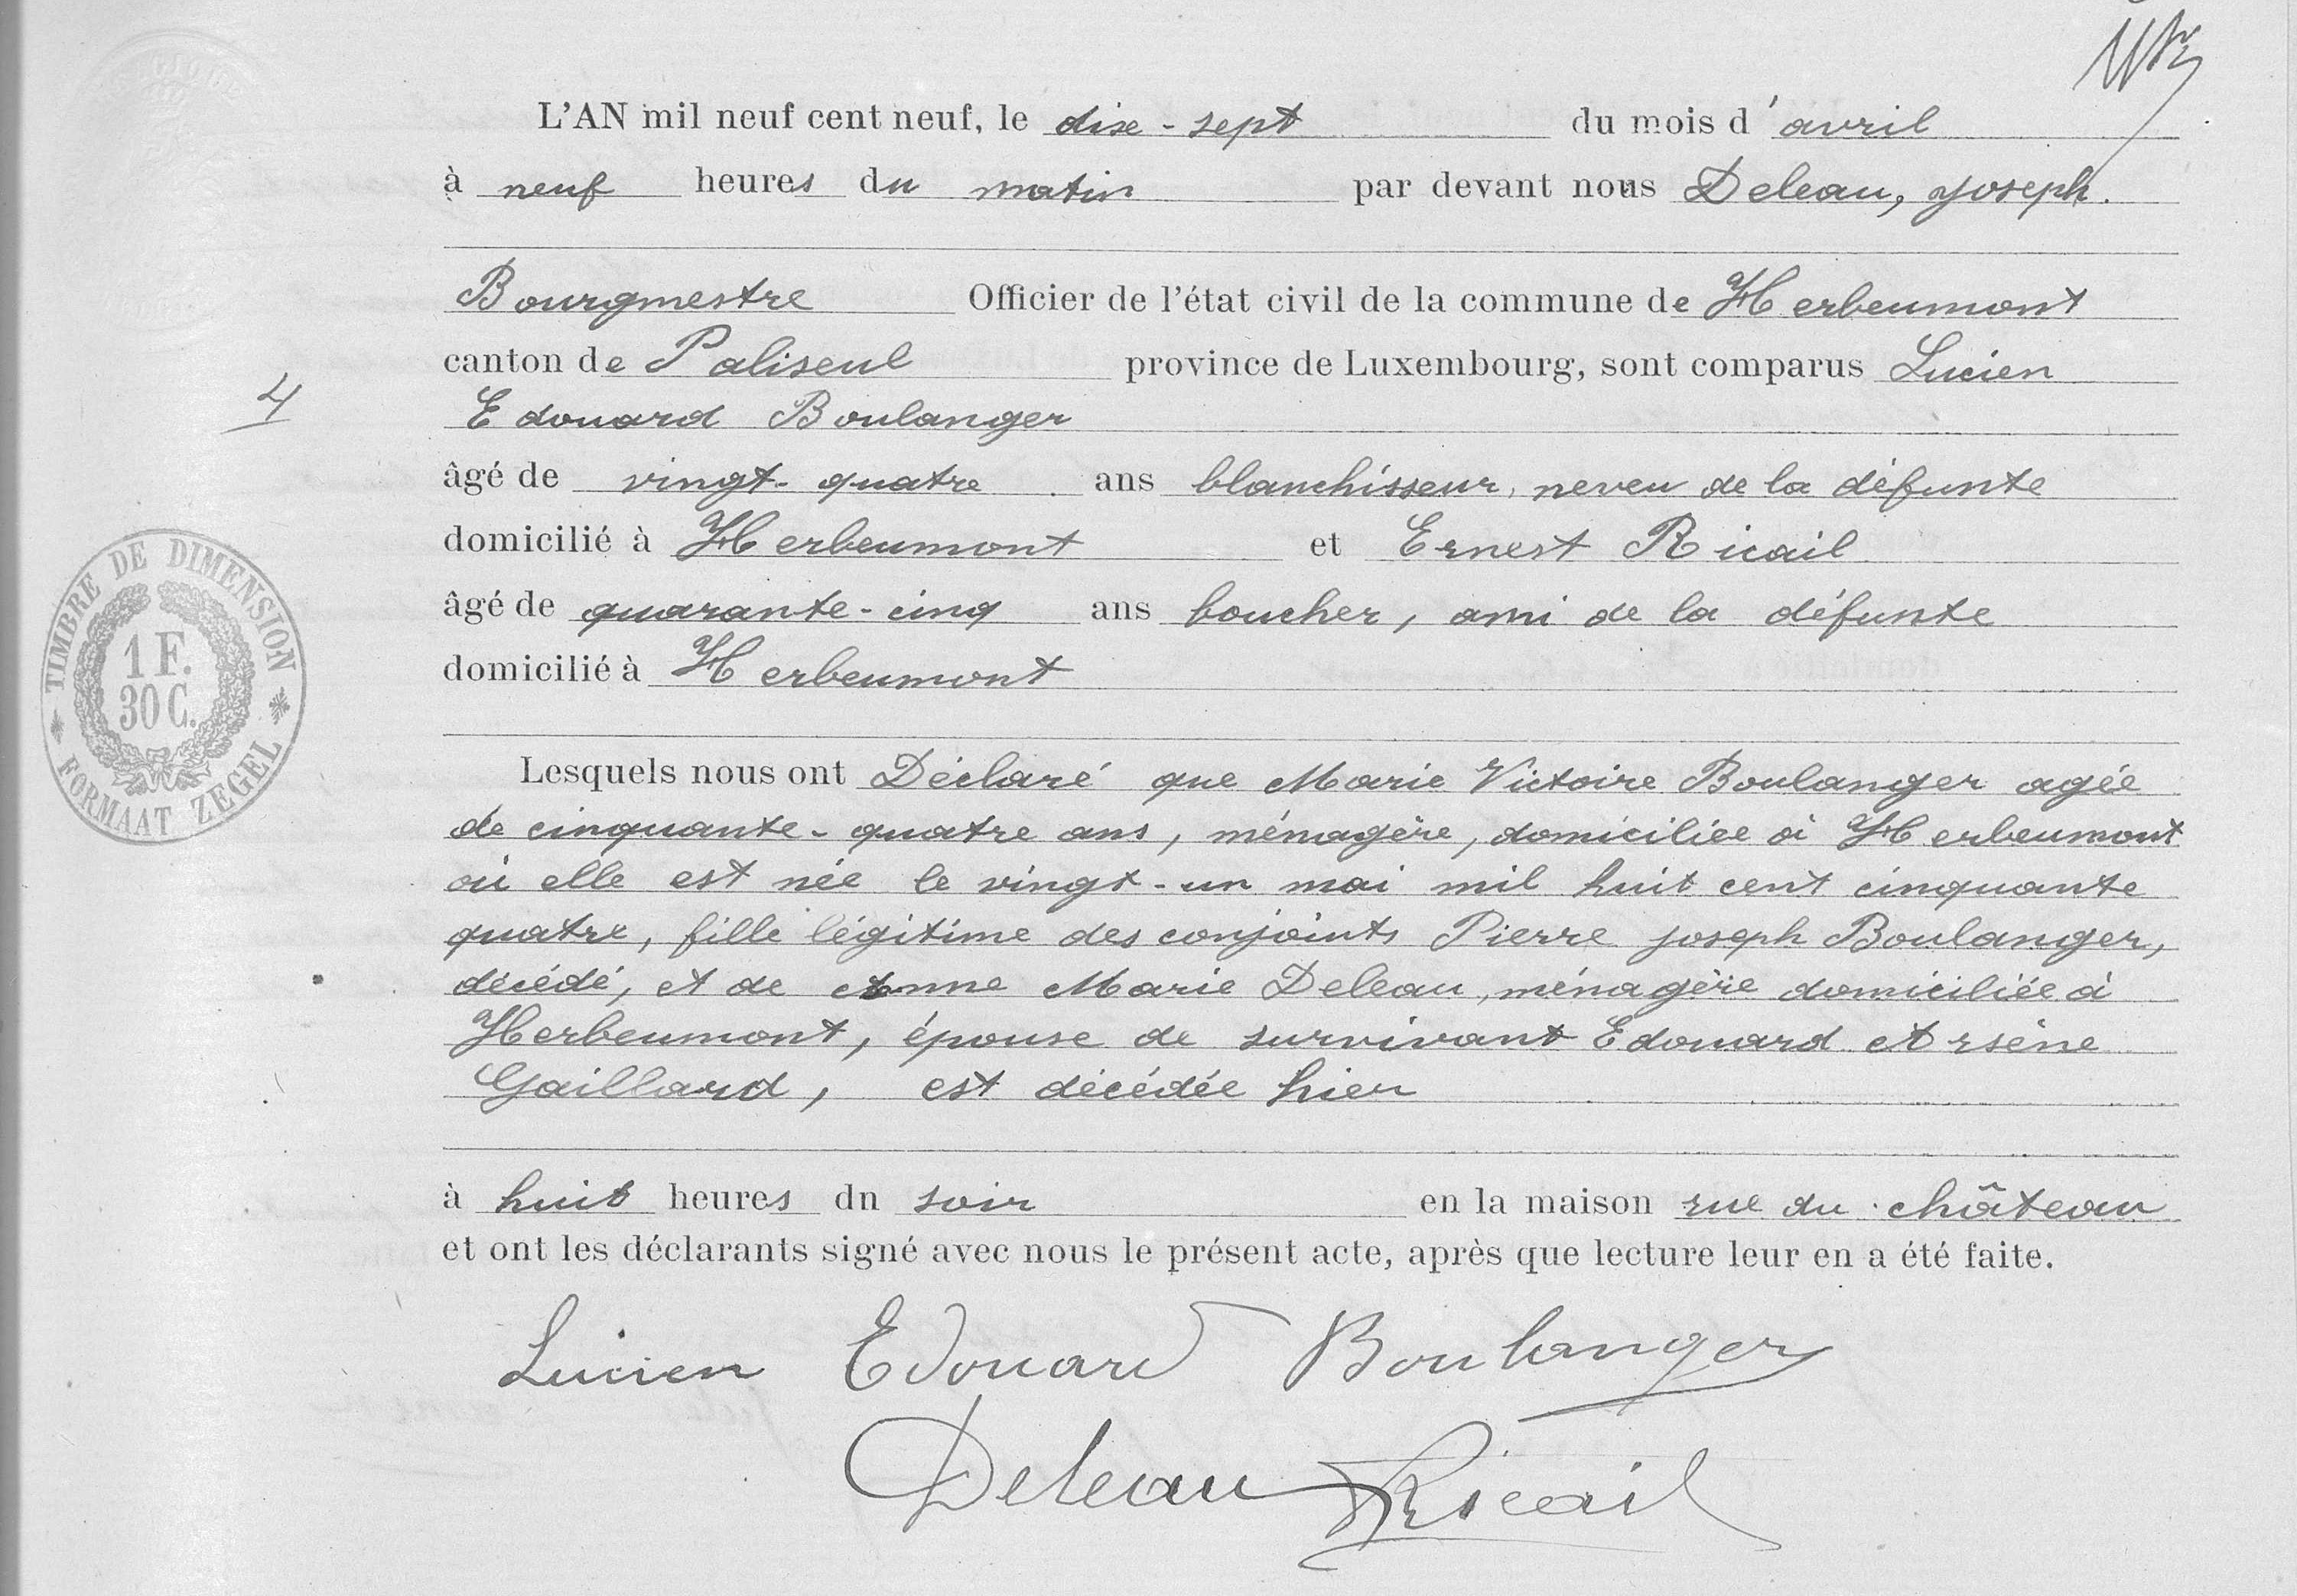 L'AN mil neuf cent neuf, le dix-sept du mois d'avril
à neuf heures du matin par devant nous Deleau, Joseph.
Bourgmestre Officier de l'état civil de la commune de Herbeumont
canton de Paliseul province de Luxembourg, sont comparus Lucien
4
Edouard Boulanger
âgé de vingt-quatre ans blanchisseur, neveu de la défunte
domicilié à Herbeumont et Ernest Ricail
âgé de quarante-cinq ans boucher, ami de la défunte
domicilié à Herbeumont
TIMBRE DE DIMENSION
1 F.
30 C.
FORMAAT ZEGEL
Lesquels nous ont Déclaré que Marie Victoire Boulanger agée
de cinquante-quatre ans, ménagère, domiciliée à Herbeumont
où elle est née le vingt-un mai mil huit cent cinquante
quatre, fille légitime des conjoints Pierre joseph Boulanger,
décédé, et de Anne Marie Deleau, ménagère domiciliée à
Herbeumont, épouse de survivant Edouard Arsène
Gaillard, est décédée hier
à huit heures du soir en la maison rue du château
et ont les déclarants signé avec nous le présent acte, après que lecture leur en a été faite.
Lucien Edouard Boulanger
Deleau Ricail